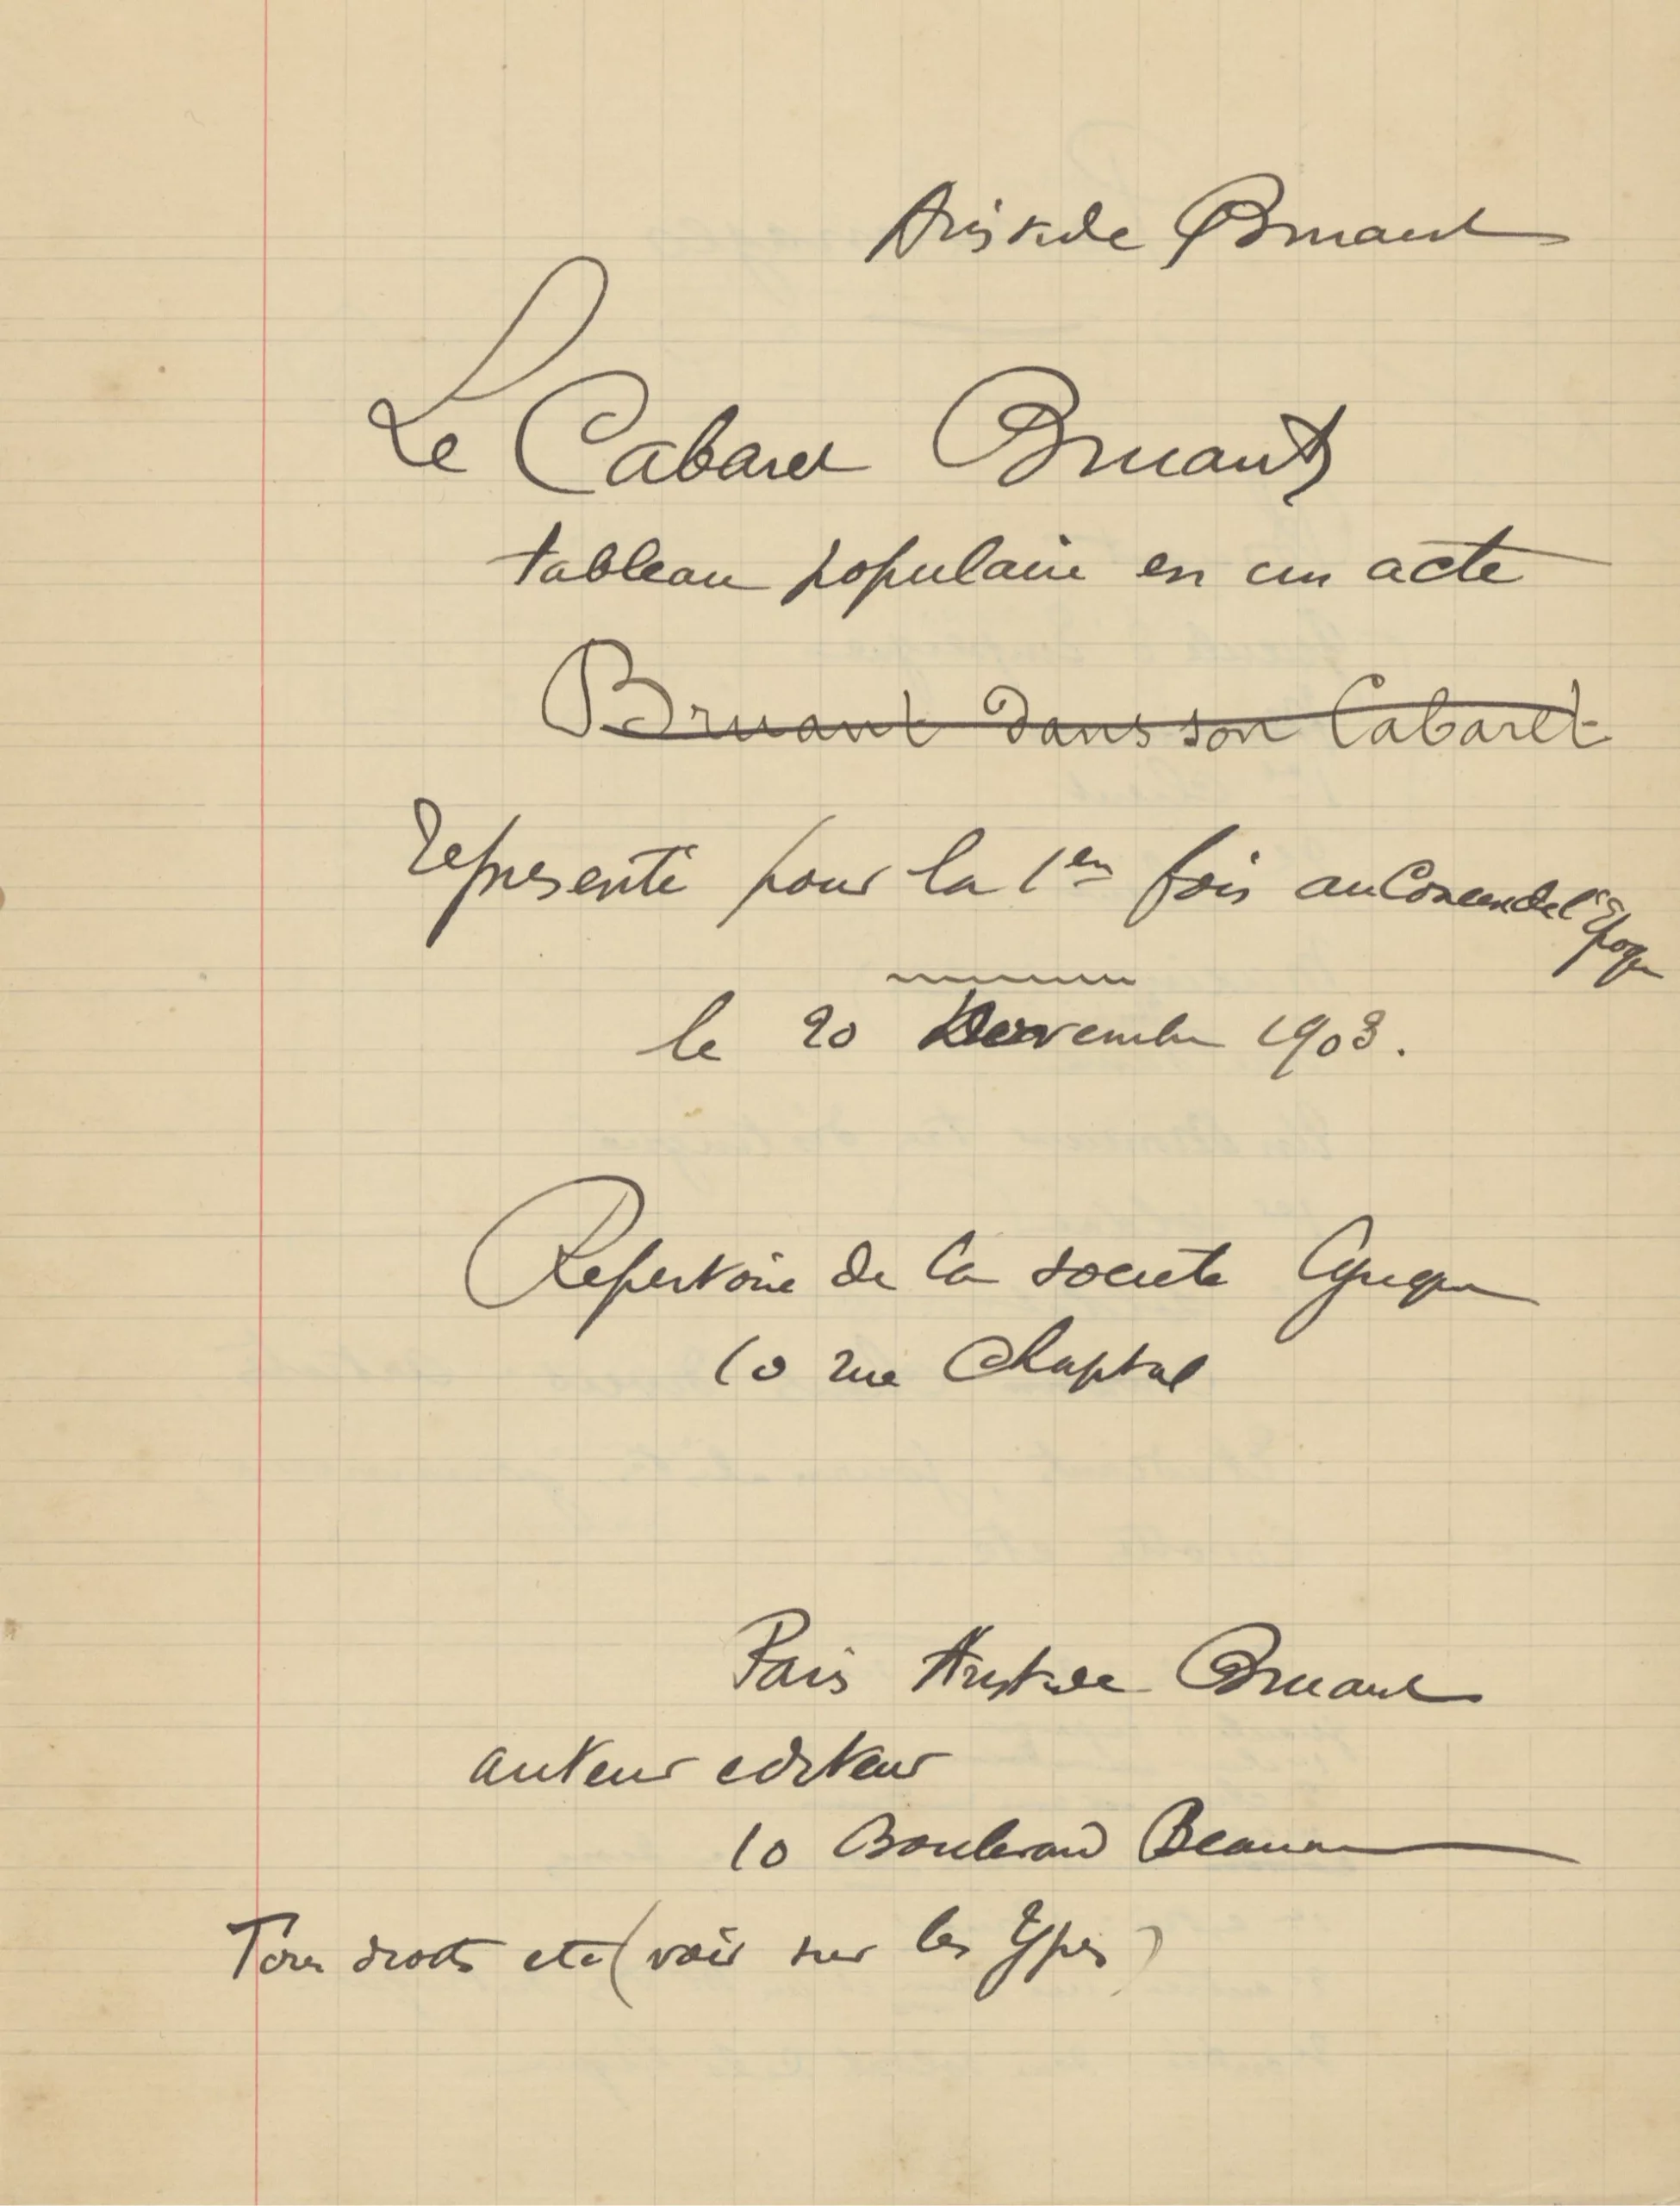 Aristide Bruant
Le Cabaret Bruant
tableau populaire en un acte
Bruant dans son Cabaret
représenté pour la 1ere fois au Concert de l'Epoque
le 20 Novembre 1903.
Repertoire de la société lyrique
10 rue Chaptal
Paris Aristide Bruant
auteur editeur
10 Boulevard Beaum
Tous droits etc (voir sur les types)